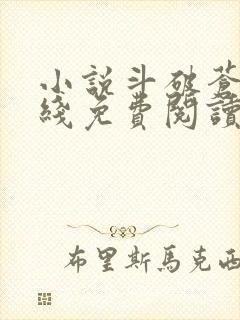 小説斗破蒼
綫免費閱讀
布里斯馬克西